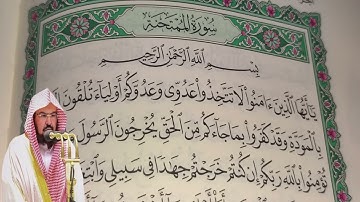 سُورَةُ المُمْتَحنَةِ
بِسْمِ ٱللَّهِ ٱلرَّحْمَٰنِ ٱلرَّحِيمِ
يَٰٓأَيُّهَا ٱلَّذِينَ ءَامَنُوا۟ لَا تَتَّخِذُوا۟ عَدُوِّى وَعَدُوَّكُمْ أَوْلِيَآءَ تُلْقُونَ
بِٱلْمَوَدَّةِ وَقَدْ كَفَرُوا۟ بِمَا جَآءَكُم مِّنَ ٱلْحَقِّ يُخْرِجُونَ ٱلرَّسُولَ
تُؤْمِنُوا۟ بِٱللَّهِ رَبِّكُمْ إِن كُنتُمْ خَرَجْتُمْ جِهَٰدًا فِى سَبِيلِى وَٱبْتِغَ